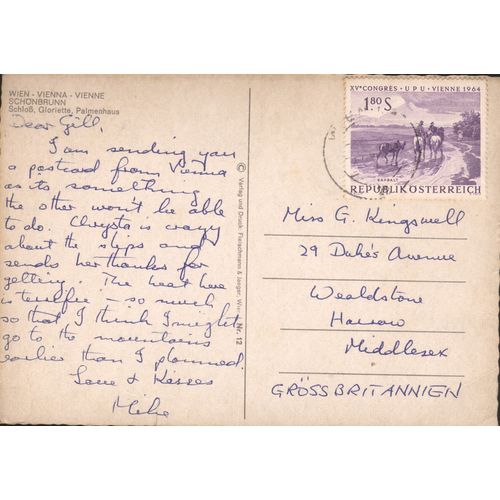 WIEN - VIENNA - VIENNE
SCHÖNBRUNN
Schloß, Gloriette, Palmenhaus
Dear Gill,
I am sending you
a postcard from Vienna
as its something
the other won't be able
to do. Chrysta is crazy
about the slips and
sends her thanks for
getting. The heat here
is terrific - so much
so that I think I might
go to the mountains
earlier than I planned.
Love & Kisses
Mike
© Verlag und Druck: Fleischmann & Jaeger, Wien Nr. 12
XV. CONGRÈS · UPU · VIENNE 1964
1.80 S
REPUBLIK ÖSTERREICH
Miss G. Kingswell
29 Duke's Avenue
Wealdstone
Harrow
Middlesex
GRÖSSBRITANNIEN